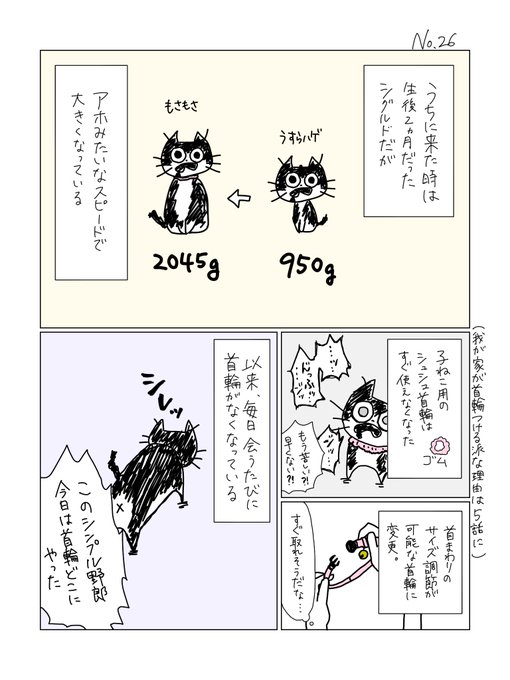 No.26
うちに来た時は
生後2ヵ月だった
シグルドだが
うすらハゲ
950g
もさもさ
2045g
アホみたいなスピードで
大きくなっている
(我が家が首輪つける派な理由は5話に)
子ねこ用の
シュシュ首輪は
すぐ使えなくなった
ゴム
もう苦しい?!
早くない?!
首まわりの
サイズ調節が
可能な首輪に
変更。
すぐ取れそうだな…
以来、毎日会うたびに
首輪がなくなっている
シレッ
このシンプル野郎
今日は首輪どこに
やった